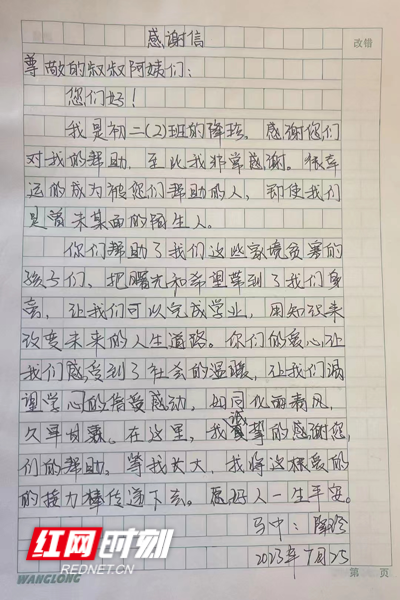 感谢信
改错
尊敬的叔叔阿姨们：
您们好！
我是初二(2)班的降珍，感谢您们
对我的帮助，至此我非常感谢。很幸
运的成为被您们帮助的人，即使我们
是素未某面的陌生人。
你们帮助了我们这些家境贫寒的
孩子们，把曙光和希望带到了我们身
旁，让我们可以完成学业，用知识来
改变未来的人生道路。你们的爱心让
我们感受到了社会的温暖，让我们满
学心的 感动，如同化雨春风，
久旱甘露。在这里，我诚挚的感谢您
们的帮助，等我长大，我将这样爱的
的接力棒传递下去。愿好人一生平安。
2023年7月25
红网时刻
REDNET.CN
WANGLONG
第 页